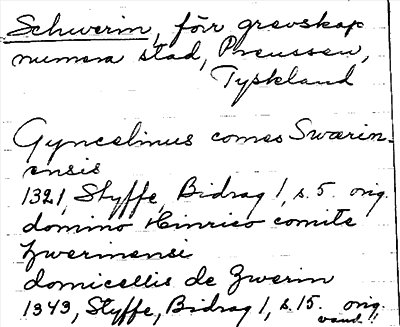 Schwerin, förr grevskap
numera stad, Preussen,
Tyskland
Gyncelinus comes Swærin-
ensis
1321, Styffe, Bidrag 1, s. 5. orig.
domino Hinrico comite
Zwerinensi
domicellis de Zwerin
1343, Styffe, Bidrag 1, s. 15. orig.